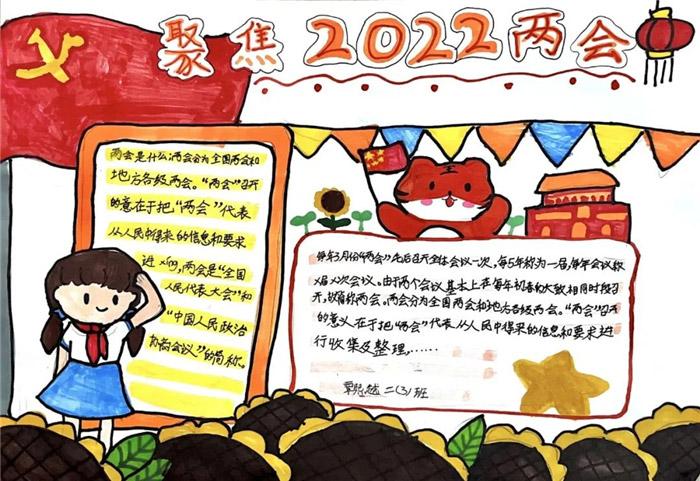 聚焦2022两会
两会是什么:两会分为全国两会和
地方各级两会。“两会”召开
的意在于把“两会”代表
从人民中得来的信息和要求
两会是“全国
人民代表大会”和
“中国人民政治
协商会议”的简称。
每年3月份“两会”先后召开全体会议一次,每5年称为一届,每年会议称
X届X次会议。由于两个会议基本上在每年初春和大致相同时段召
开,故简称两会。两会分为全国两会和地方各级两会。“两会”召开
的意义在于把“两会”代表从人民中得来的信息和要求进
行收集及整理,……
二(3)班